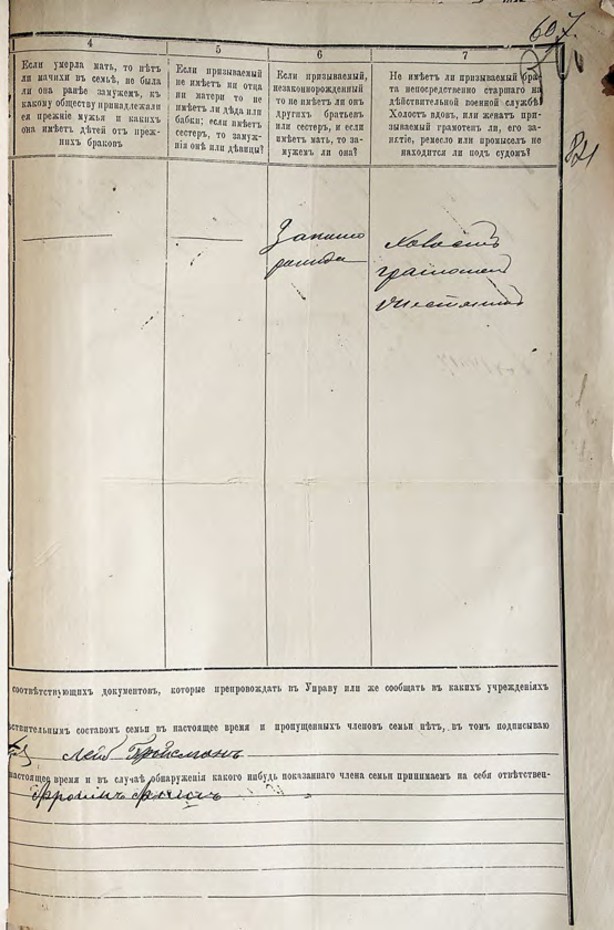 607.
4
5
6
7
Если умерла мать, то нѣтъ
ли мачихи въ семьѣ, не была
ли она ранѣе замужемъ, къ
какому обществу принадлежали
ея прежніе мужья и какихъ
она имѣетъ дѣтей отъ преж-
нихъ браковъ
Если призываемый
не имѣетъ ни отца
ни матери то не
имѣетъ ли дѣда или
бабки; если имѣетъ
сестеръ, то замуж-
нія онѣ или дѣвицы?
Если призываемый,
незаконнорожденный
то не имѣетъ ли онъ
другихъ братьевъ
или сестеръ, и если
имѣетъ мать, то за-
мужемъ ли она?
Не имѣетъ ли призываемый бра-
та непосредственно старшаго на
дѣйствительной военной службѣ
Холостъ вдовъ, или женатъ при-
зываемый грамотенъ ли, его за-
нятіе, ремесло или промыселъ не
находится ли подъ судомъ?
Холостъ
грамотенъ
соотвѣтствующихъ документовъ, которые препровождать въ Управу или же сообщать въ какихъ учрежденіяхъ
ствительнымъ составомъ семьи въ настоящее время и пропущенныхъ членовъ семьи нѣтъ, въ томъ подписываю
Лейб
настоящее время и въ случаѣ обнаруженія какого нибудь показаннаго члена семьи принимаемъ на себя отвѣтствен-